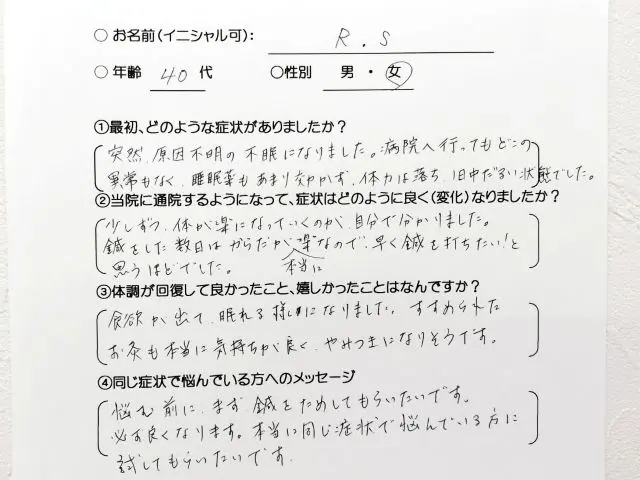 ○ お名前(イニシャル可): R.S
○ 年齢 40 代 ○性別 男・女
①最初、どのような症状がありましたか?
突然、原因不明の不眠になりました。病院へ行ってもどこの
異常もなく、睡眠薬もあまり効かず、体力は落ち、1日中だるい状態でした。
②当院に通院するようになって、症状はどのように良く(変化)なりましたか?
少しずつ、体が楽になっていくのが、自分で分かりました。
鍼をした数日はからだが楽なので、早く鍼を打ちたい!と
本当に
思うほどでした。
③体調が回復して良かったこと、嬉しかったことはなんですか?
食欲が出て、眠れる様になりました。すすめられた
お灸も本当に気持ちが良く、やみつきになりそうです。
④同じ症状で悩んでいる方へのメッセージ
悩む前に、まず、鍼をためしてもらいたいです。
必ず良くなります。本当に同じ症状で悩んでいる方に
試してもらいたいです。